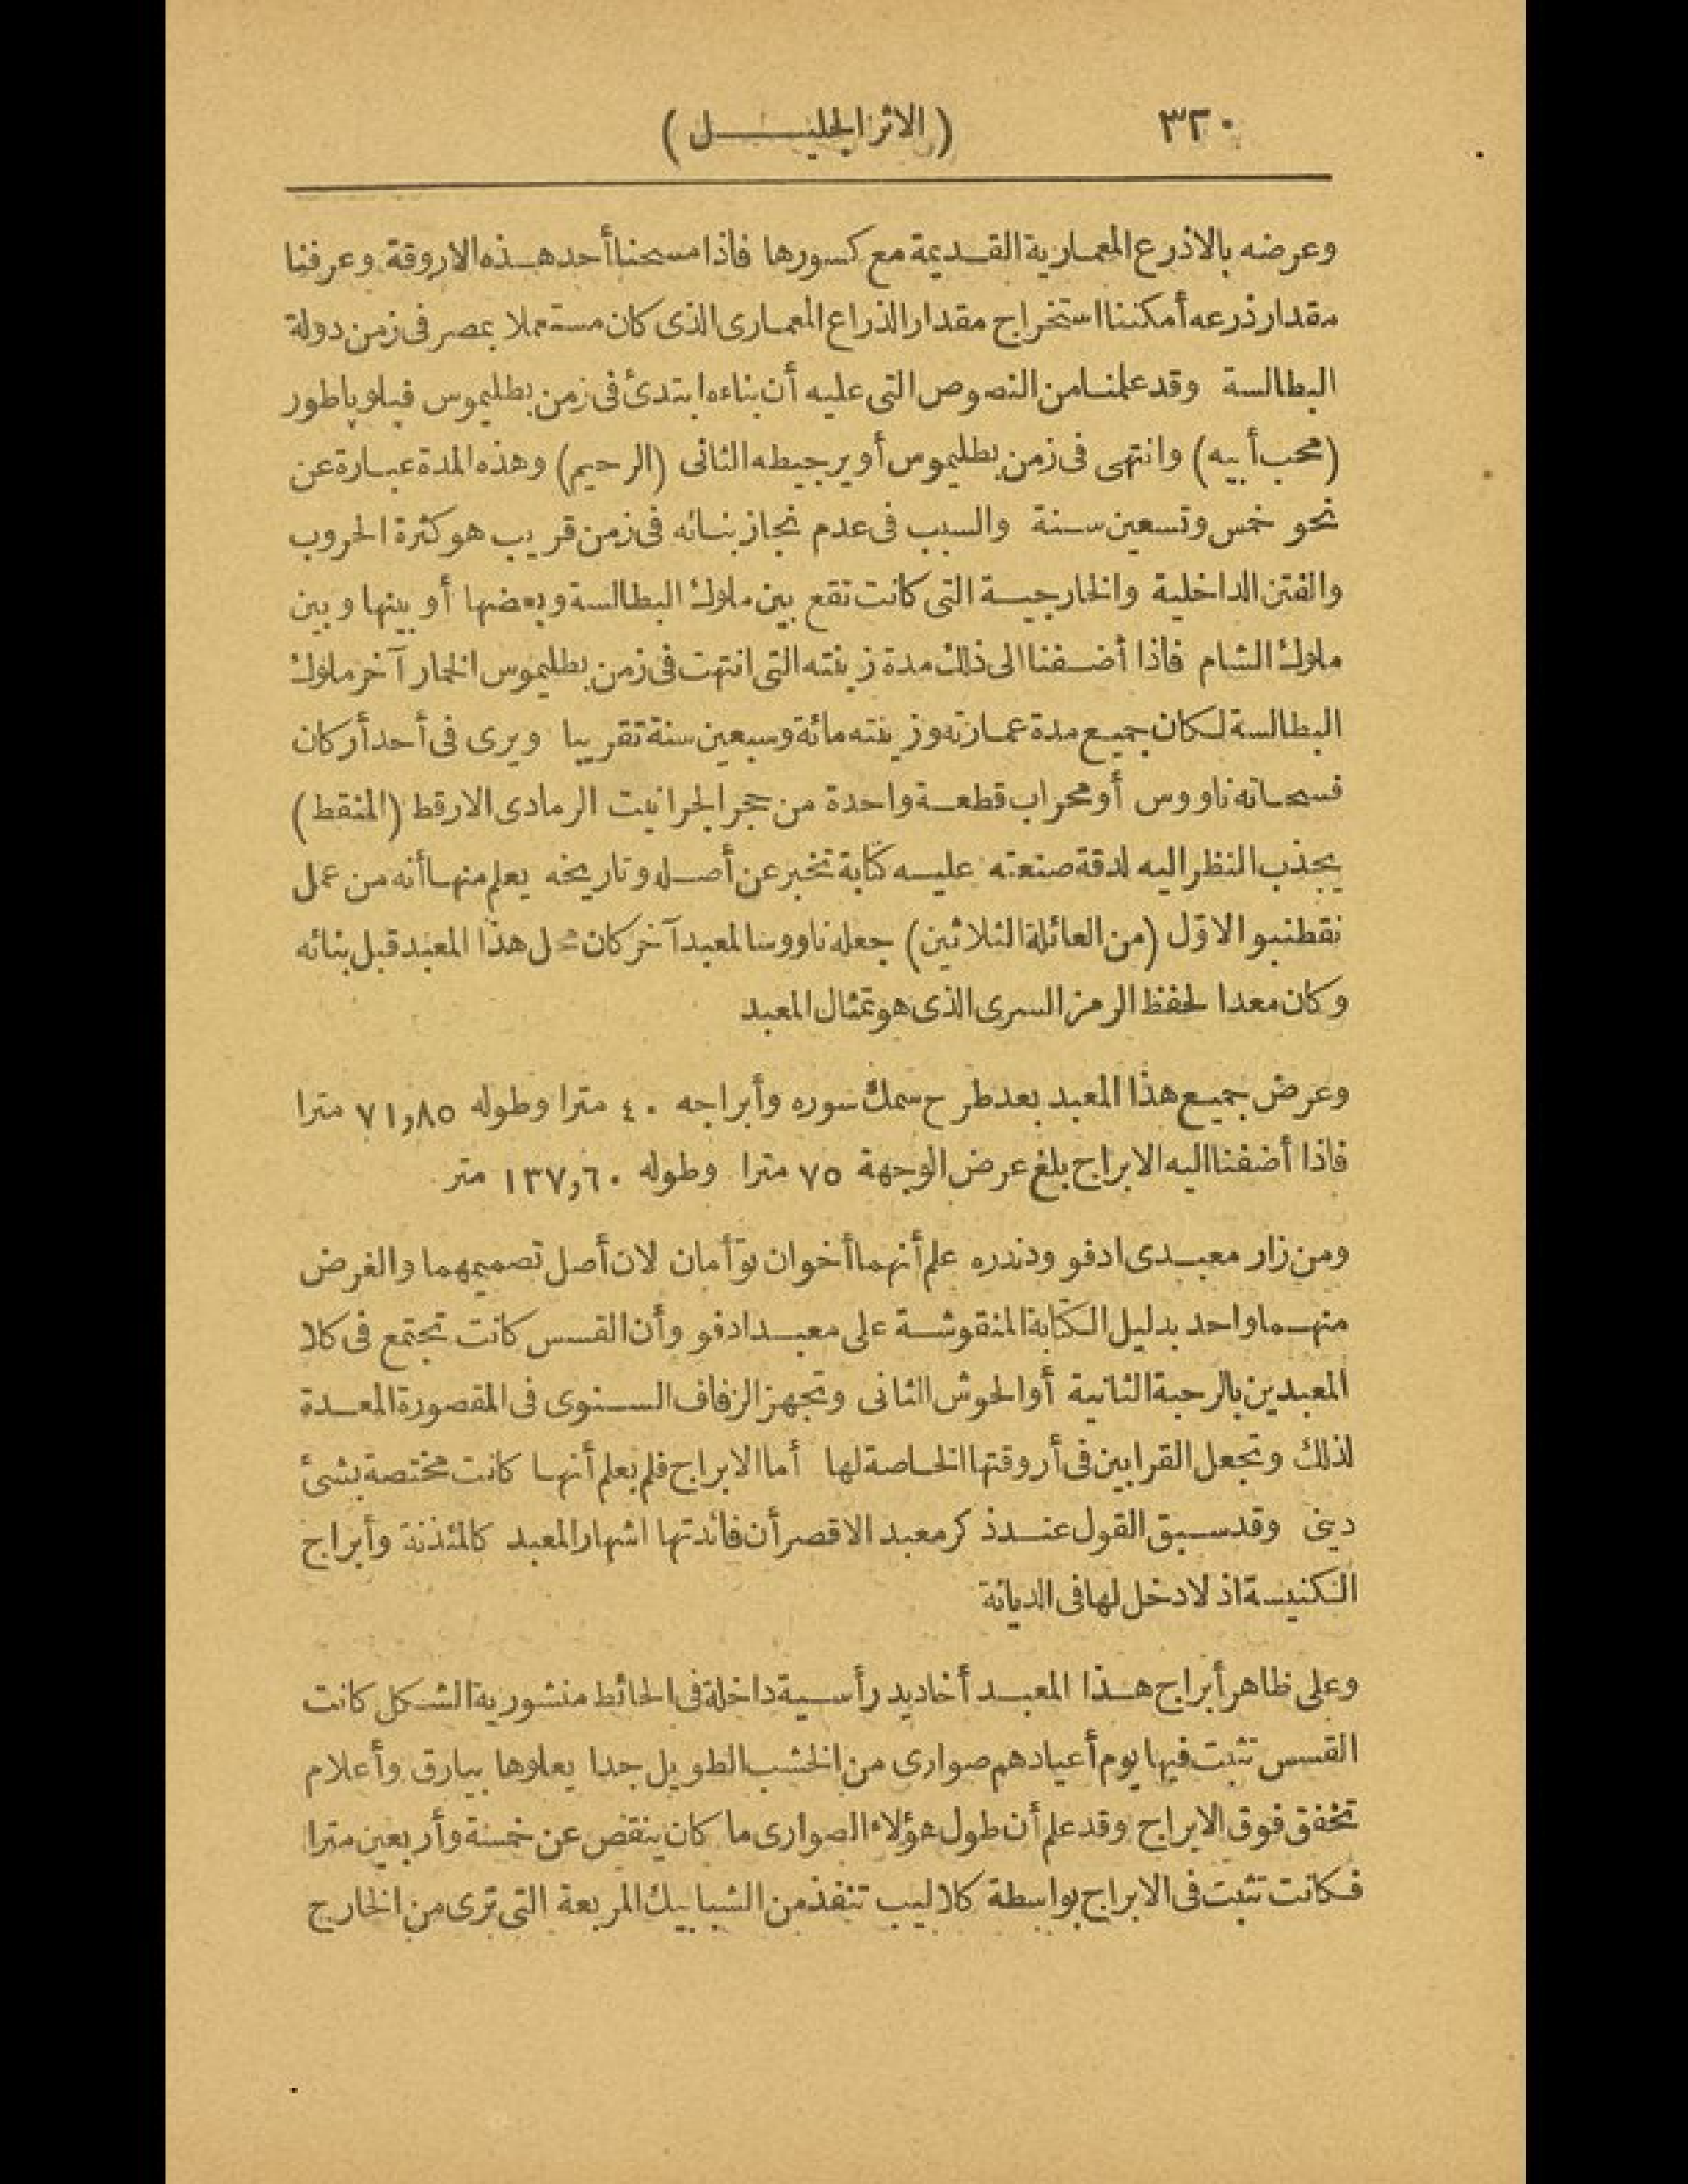 ٣٢٠
(الاثر الجليل)
وعرضه بالاذرع المعمارية القديمة مع كسورها فاذا مسحنا أحد هذه الاروقة وعرفنا
مقدار ذرعه أمكننا استخراج مقدار الذراع المعمارى الذى كان مستعملا بمصر فى زمن دولة
البطالسة وقد علمنا من النصوص التى عليه أن بناءه ابتدئ فى زمن بطليموس فيلوپاطور
(محب أبيه) وانتهى فى زمن بطليموس أويرجيطه الثانى (الرحيم) وهذه المدة عبارة عن
نحو خمس وتسعين سنة والسبب فى عدم نجاز بنائه فى زمن قريب هو كثرة الحروب
والفتن الداخلية والخارجية التى كانت تقع بين ملوك البطالسة وبعضها أو بينها وبين
ملوك الشام فاذا أضفنا الى ذلك مدة زينته التى انتهت فى زمن بطليموس الخمار آخر ملوك
البطالسة لكان جميع مدة عمارته وزينته مائة وسبعين سنة تقريبا ويرى فى أحد أركان
فسحاته ناووس أو محراب قطعة واحدة من حجر الجرانيت الرمادى الارقط (المنقط)
يجذب النظر اليه لدقة صنعته عليه كتابة تخبر عن أصله وتاريخه يعلم منها أنه من عمل
نقطنبو الاوّل (من العائلة الثلاثين) جعله ناووسا لمعبد آخر كان محل هذا المعبد قبل بنائه
وكان معدا لحفظ الرمز السرى الذى هو تمثال المعبد
وعرض جميع هذا المعبد بعد طرح سمك سوره وأبراجه ٤٠ مترا وطوله ٧١,٨٥ مترا
فاذا أضفنا اليه الابراج بلغ عرض الوجهة ٧٥ مترا وطوله ١٣٧,٦٠ متر
ومن زار معبدى ادفو ودندره علم أنهما أخوان توأمان لان أصل تصميمهما والغرض
منهما واحد بدليل الكتابة المنقوشة على معبد ادفو وأن القسس كانت تجتمع فى كلا
المعبدين بالرحبة الثانية أو الحوش الثانى وتجهز الزفاف السنوى فى المقصورة المعدة
لذلك وتجعل القرابين فى أروقتها الخاصة لها أما الابراج فلم يعلم أنها كانت مختصة بشئ
دينى وقد سبق القول عند ذكر معبد الاقصر أن فائدتها اشهار المعبد كالمئذنة وأبراج
الكنيسة اذ لا دخل لها فى الديانة
وعلى ظاهر أبراج هذا المعبد أخاديد رأسية داخلة فى الحائط منشورية الشكل كانت
القسس تثبت فيها يوم أعيادهم صوارى من الخشب الطويل جدا يعلوها بيارق وأعلام
تخفق فوق الابراج وقد علم أن طول هؤلاء الصوارى ما كان ينقص عن خمسة وأربعين مترا
فكانت تثبت فى الابراج بواسطة كلاليب تنفذ من الشبابيك المربعة التى ترى من الخارج